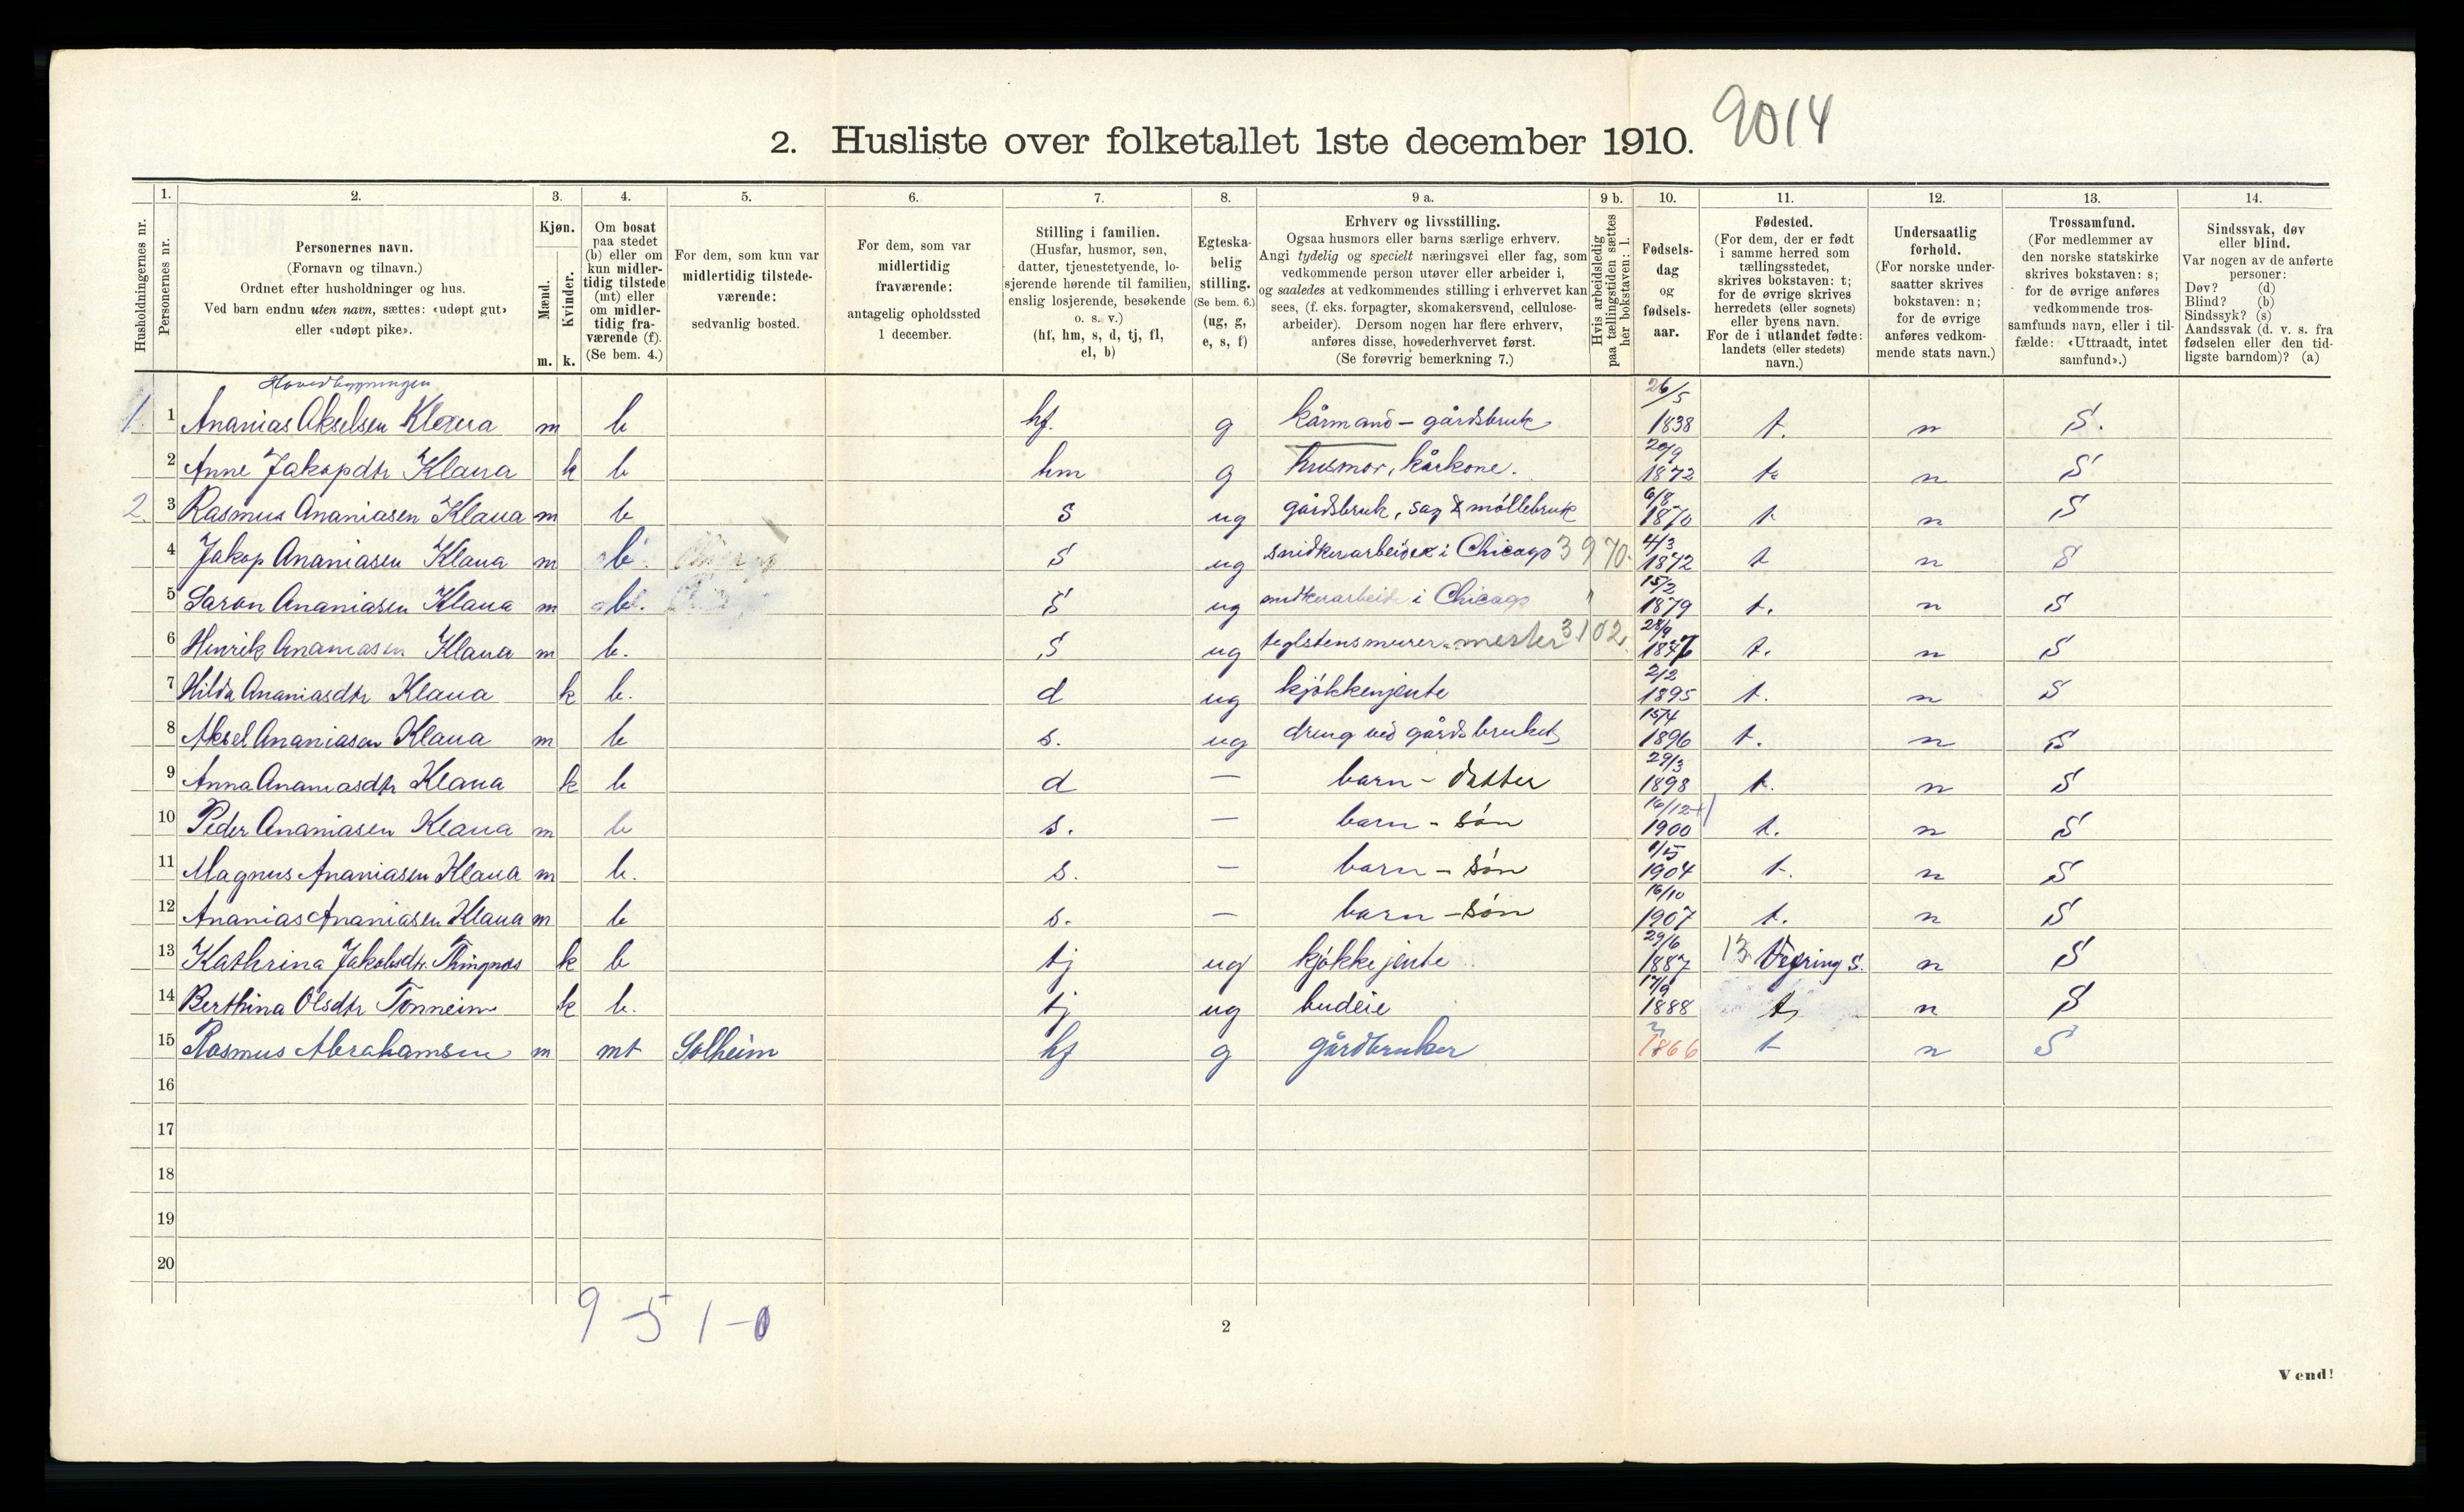 2. Husliste over folketallet 1ste december 1910. 9014
1. 2. 3. 4. 5. 6. 7. 8. 9 a. 9 b. 10. 11. 12. 13. 14.
Husholdningernes nr.
Personernes nr.
Personernes navn.
(Fornavn og tilnavn.)
Ordnet efter husholdninger og hus.
Ved barn endnu uten navn, sættes: «udøpt gut»
eller «udøpt pike».
Kjøn.
Mænd.
Kvinder.
m. k.
Om bosat
paa stedet
(b) eller om
kun midler-
tidig tilstede
(mt) eller
om midler-
tidig fra-
værende (f).
(Se bem. 4.)
For dem, som kun var
midlertidig tilstede-
værende:
sedvanlig bosted.
For dem, som var
midlertidig
fraværende:
antagelig opholdssted
1 december.
Stilling i familien.
(Husfar, husmor, søn,
datter, tjenestetyende, lo-
sjerende hørende til familien,
enslig losjerende, besøkende
o. s. v.)
(hf, hm, s, d, tj, fl,
el, b)
Egteska-
belig
stilling.
(Se bem. 6.)
(ug, g,
e, s, f)
Erhverv og livsstilling.
Ogsaa husmors eller barns særlige erhverv.
Angi tydelig og specielt næringsvei eller fag, som
vedkommende person utøver eller arbeider i,
og saaledes at vedkommendes stilling i erhvervet kan
sees, (f. eks. forpagter, skomakersvend, cellulose-
arbeider). Dersom nogen har flere erhverv,
anføres disse, hovederhvervet først.
(Se forøvrig bemerkning 7.)
Hvis arbeidsledig
paa tællingstiden sættes
her bokstaven: l.
Fødsels-
dag
og
fødsels-
aar.
Fødested.
(For dem, der er født
i samme herred som
tællingsstedet,
skrives bokstaven: t;
for de øvrige skrives
herredets (eller sognets)
eller byens navn.
For de i utlandet fødte:
landets (eller stedets)
navn.)
Undersaatlig
forhold.
(For norske under-
saatter skrives
bokstaven: n;
for de øvrige
anføres vedkom-
mende stats navn.)
Trossamfund.
(For medlemmer av
den norske statskirke
skrives bokstaven: s;
for de øvrige anføres
vedkommende tros-
samfunds navn, eller i til-
fælde: «Uttraadt, intet
samfund».)
Sindssvak, døv
eller blind.
Var nogen av de anførte
personer:
Døv? (d)
Blind? (b)
Sindssyk? (s)
Aandssvak (d. v. s. fra
fødselen eller den tid-
ligste barndom)? (a)
Hovedbygningen
1. 1 Ananias Akselsen Klaua m b hf. g kårmand - gårdsbruk 26/5 1838 t. n S.
2 Anne Jakopdtr Klaua k b hm g husmor, kårkone. 20/9 1872 t. n S
2. 3 Rasmus Ananiasen Klaua m b s ug gårdsbruk, sag & møllebruk 6/8 1870 t n S
4 Jakop Ananiasen Klaua m b Chicago s ug snidkerarbeider i Chicago 3970. 4/3 1872 t n S
5 Saron Ananiasen Klaua m b. s ug snidkerarbeide i Chicago " 15/2 1879 t. n S
6 Henrik Ananiasen Klaua m b. s ug teglstensmurer-mester 3102. 28/9 t. n S
7 Hilda Ananiasdtr Klaua k b. d ug kjøkkenjente 2/2 1895 t. n S
8 Aksel Ananiasen Klaua m b s. ug dreng ved gårdsbruket 15/4 1896 t. n S
9 Anna Ananiasdtr Klaua k b d — barn - datter 29/3 1898 t. n S
10 Peder Ananiasen Klaua m b s. — barn - søn 16/12 1900 t. n S
11 Magnus Ananiasen Klaua m b. s. — barn - søn 1904 t. n S
12 Ananias Ananiasen Klaua m b s. — barn - søn 16/10 1907 t. n S
13 Kathrina Jakobsdtr. Thingnes k b tj ug kjøkkejente 29/6 1887 13 n S
14 Berthina Olsdtr Tonneim k b. tj ug budeie 17/9 1888 t n S
15 Rasmus Abrahamsen m mt Solheim hf g gårdbruker 1866 t n S
16
17
18
19
20
9 - 5 1 - 0
2
Vend!